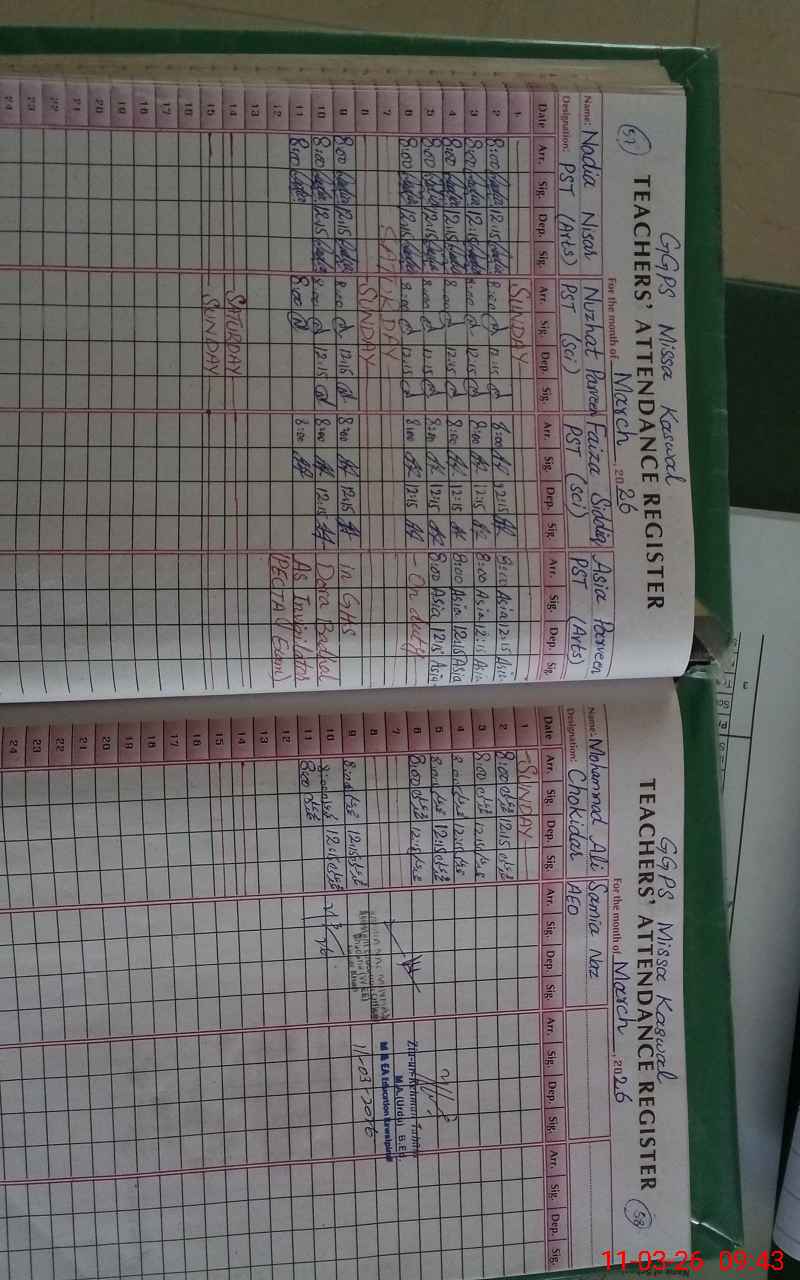 (57)
GGPS Missa Kaswal
TEACHERS' ATTENDANCE REGISTER
For the month of March, 2026
Name: Nadia Nisar Nuzhat Parveen Faiza Siddiq Asia Parveen
Designation: PST (Arts) PST (Sci) PST (Sci) PST (Arts)
Date Arr. Sig. Dep. Sig. Arr. Sig. Dep. Sig. Arr. Sig. Dep. Sig. Arr. Sig. Dep. Sig.
1 SUNDAY
2 8:00 12:15 8:00 12:15 8:00 12:15 8:00 Asia 12:15 Asia
3 8:00 12:15 8:00 12:15 8:00 12:15 8:00 Asia 12:15 Asia
4 8:00 12:15 8:00 12:15 8:00 12:15 8:00 Asia 12:15 Asia
5 8:00 12:15 8:00 12:15 8:00 12:15 8:00 Asia 12:15 Asia
6 8:00 12:15 8:00 12:15 8:00 12:15 - On duty
7 SATURDAY
8 SUNDAY
9 8:00 12:15 8:00 12:15 8:00 12:15 in GHS
10 8:00 12:15 8:00 12:15 8:00 12:15 Dora Badhal
11 8:00 8:00 8:00 As Invigilator
12 (PECTA Exam)
13
14 SATURDAY
15 SUNDAY
16
17
18
19
20
21
22
23
24
GGPS Missa Kaswal
TEACHERS' ATTENDANCE REGISTER
(58)
For the month of March, 2026
Name: Mohammad Ali Samia Naz
Designation: Chokidar AEO
Date Arr. Sig. Dep. Sig. Arr. Sig. Dep. Sig. Arr. Sig. Dep. Sig. Arr. Sig. Dep. Sig.
1 SUNDAY
2 8:00 12:15
3 8:00 12:15
4 8:00 12:15
5 8:00 12:15
6 8:00 12:15
7
8
9 8:00 12:15
10 8:00 12:15
11 8:00
12
13
14
15
16
17
18
19
20
21
22
23
24
Zia-ur-Rehman
M.A (Urdu) B.Ed.
M & EA Education Rawalpindi
11-03-2026
11-03-26 09:43